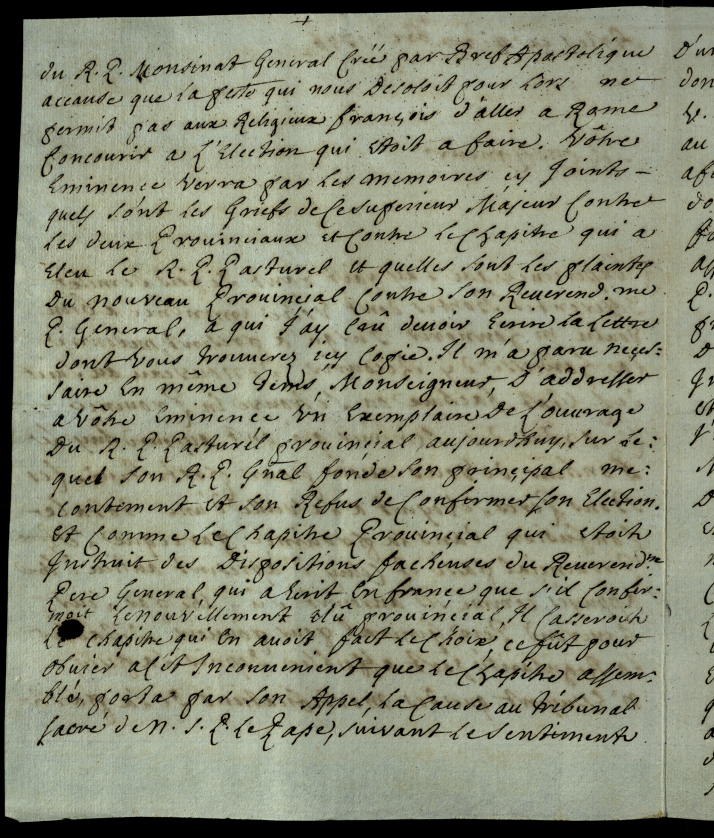 du R. P. Monsinat General Creé par Bref Apostolique
accause que la peste qui nous Desoloit pour Lors ne
permit pas aux Religieux françois d'aller a Rome
Concourir a L'Election qui Etoit a faire. Vôtre
Eminence verra par Les memoires cy Joints
quels sont Les Griefs de Ce superieur Majeur Contre
Les deux Provinciaux et Contre Le Chapitre qui a
Eleu Le R. P. Pasturel et quelles sont Les plaintes
Du nouveau Provincial Contre son Reverend.me
P. General, a qui J'ay Crû devoir Ecrire La Lettre
dont vous trouverez icy Copie. Il m'a paru neces:
saire En même tems, Monseigneur, D'addresser
a vôtre Eminence un Exemplaire De L'ouvrage
Du R. P. Pasturel provincial aujourdhuy, sur Le:
quel son R. P. Gnâl fonde son principal me:
contement et son Refus de Confirmer son Election.
Et Comme Le Chapitre Provincial qui etoit
Instruit des Dispositions facheuses du Reverendme
Pere General qui a Ecrit En france que s'il Confir:
moit Le nouvellement Elû provincial, Il Casseroit
Le Chapitre qui En avoit fait Le Choix, ce fût pour
obvier a Cet Inconvenient que Le Chapitre assem:
blé, porta par son Appel, La Cause au Tribunal
sacré de N. S. P. Le Pape, suivant Le sentiment
D'un
don
V.
au